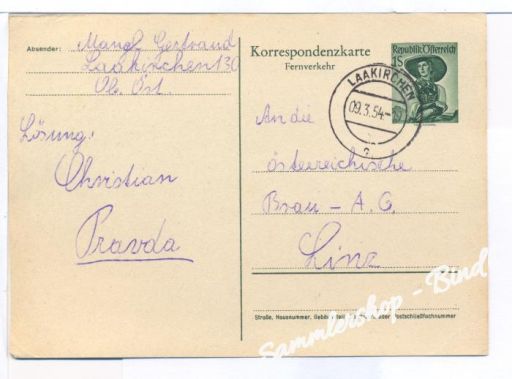 Absender: Mangl Gertraud
Laakirchen 130
Ob. Öst.
Lösung:
Christian
Pravda
Korrespondenzkarte
Fernverkehr
Republik Österreich
1S
LAAKIRCHEN
09.3.54
a
An die
österreichische
Brau - A. G.
Linz
Straße, Hausnummer, Gebäudeteil
oder Postschließfachnummer
Sammlershop - Bind